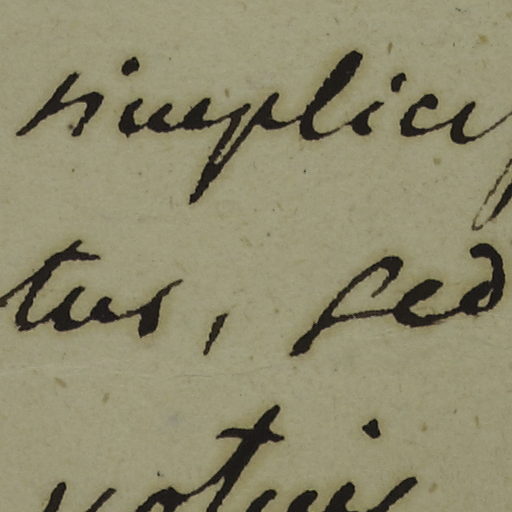 simplici
tus, sed
notius